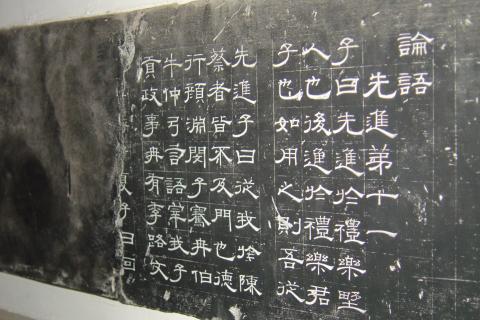 論語
先進第十一
子曰先進於禮樂野
人也後進於禮樂君
子也如用之則吾從
先進子曰從我於陳
蔡者皆不及門也德
行顏淵閔子騫冉伯
牛仲弓言語宰我子
貢政事冉有季路文
夏子曰回